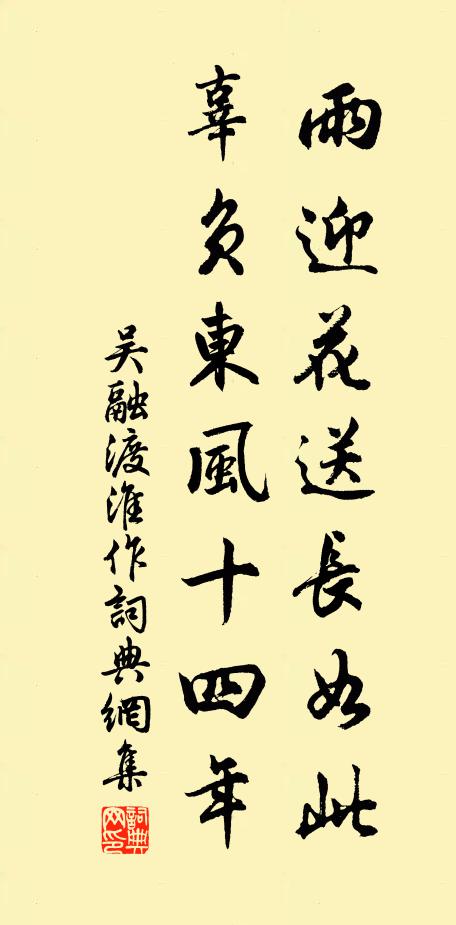 雨迎花送長如此
辜負東風十四年
吴融渡淮作詞典網集
詞典網印